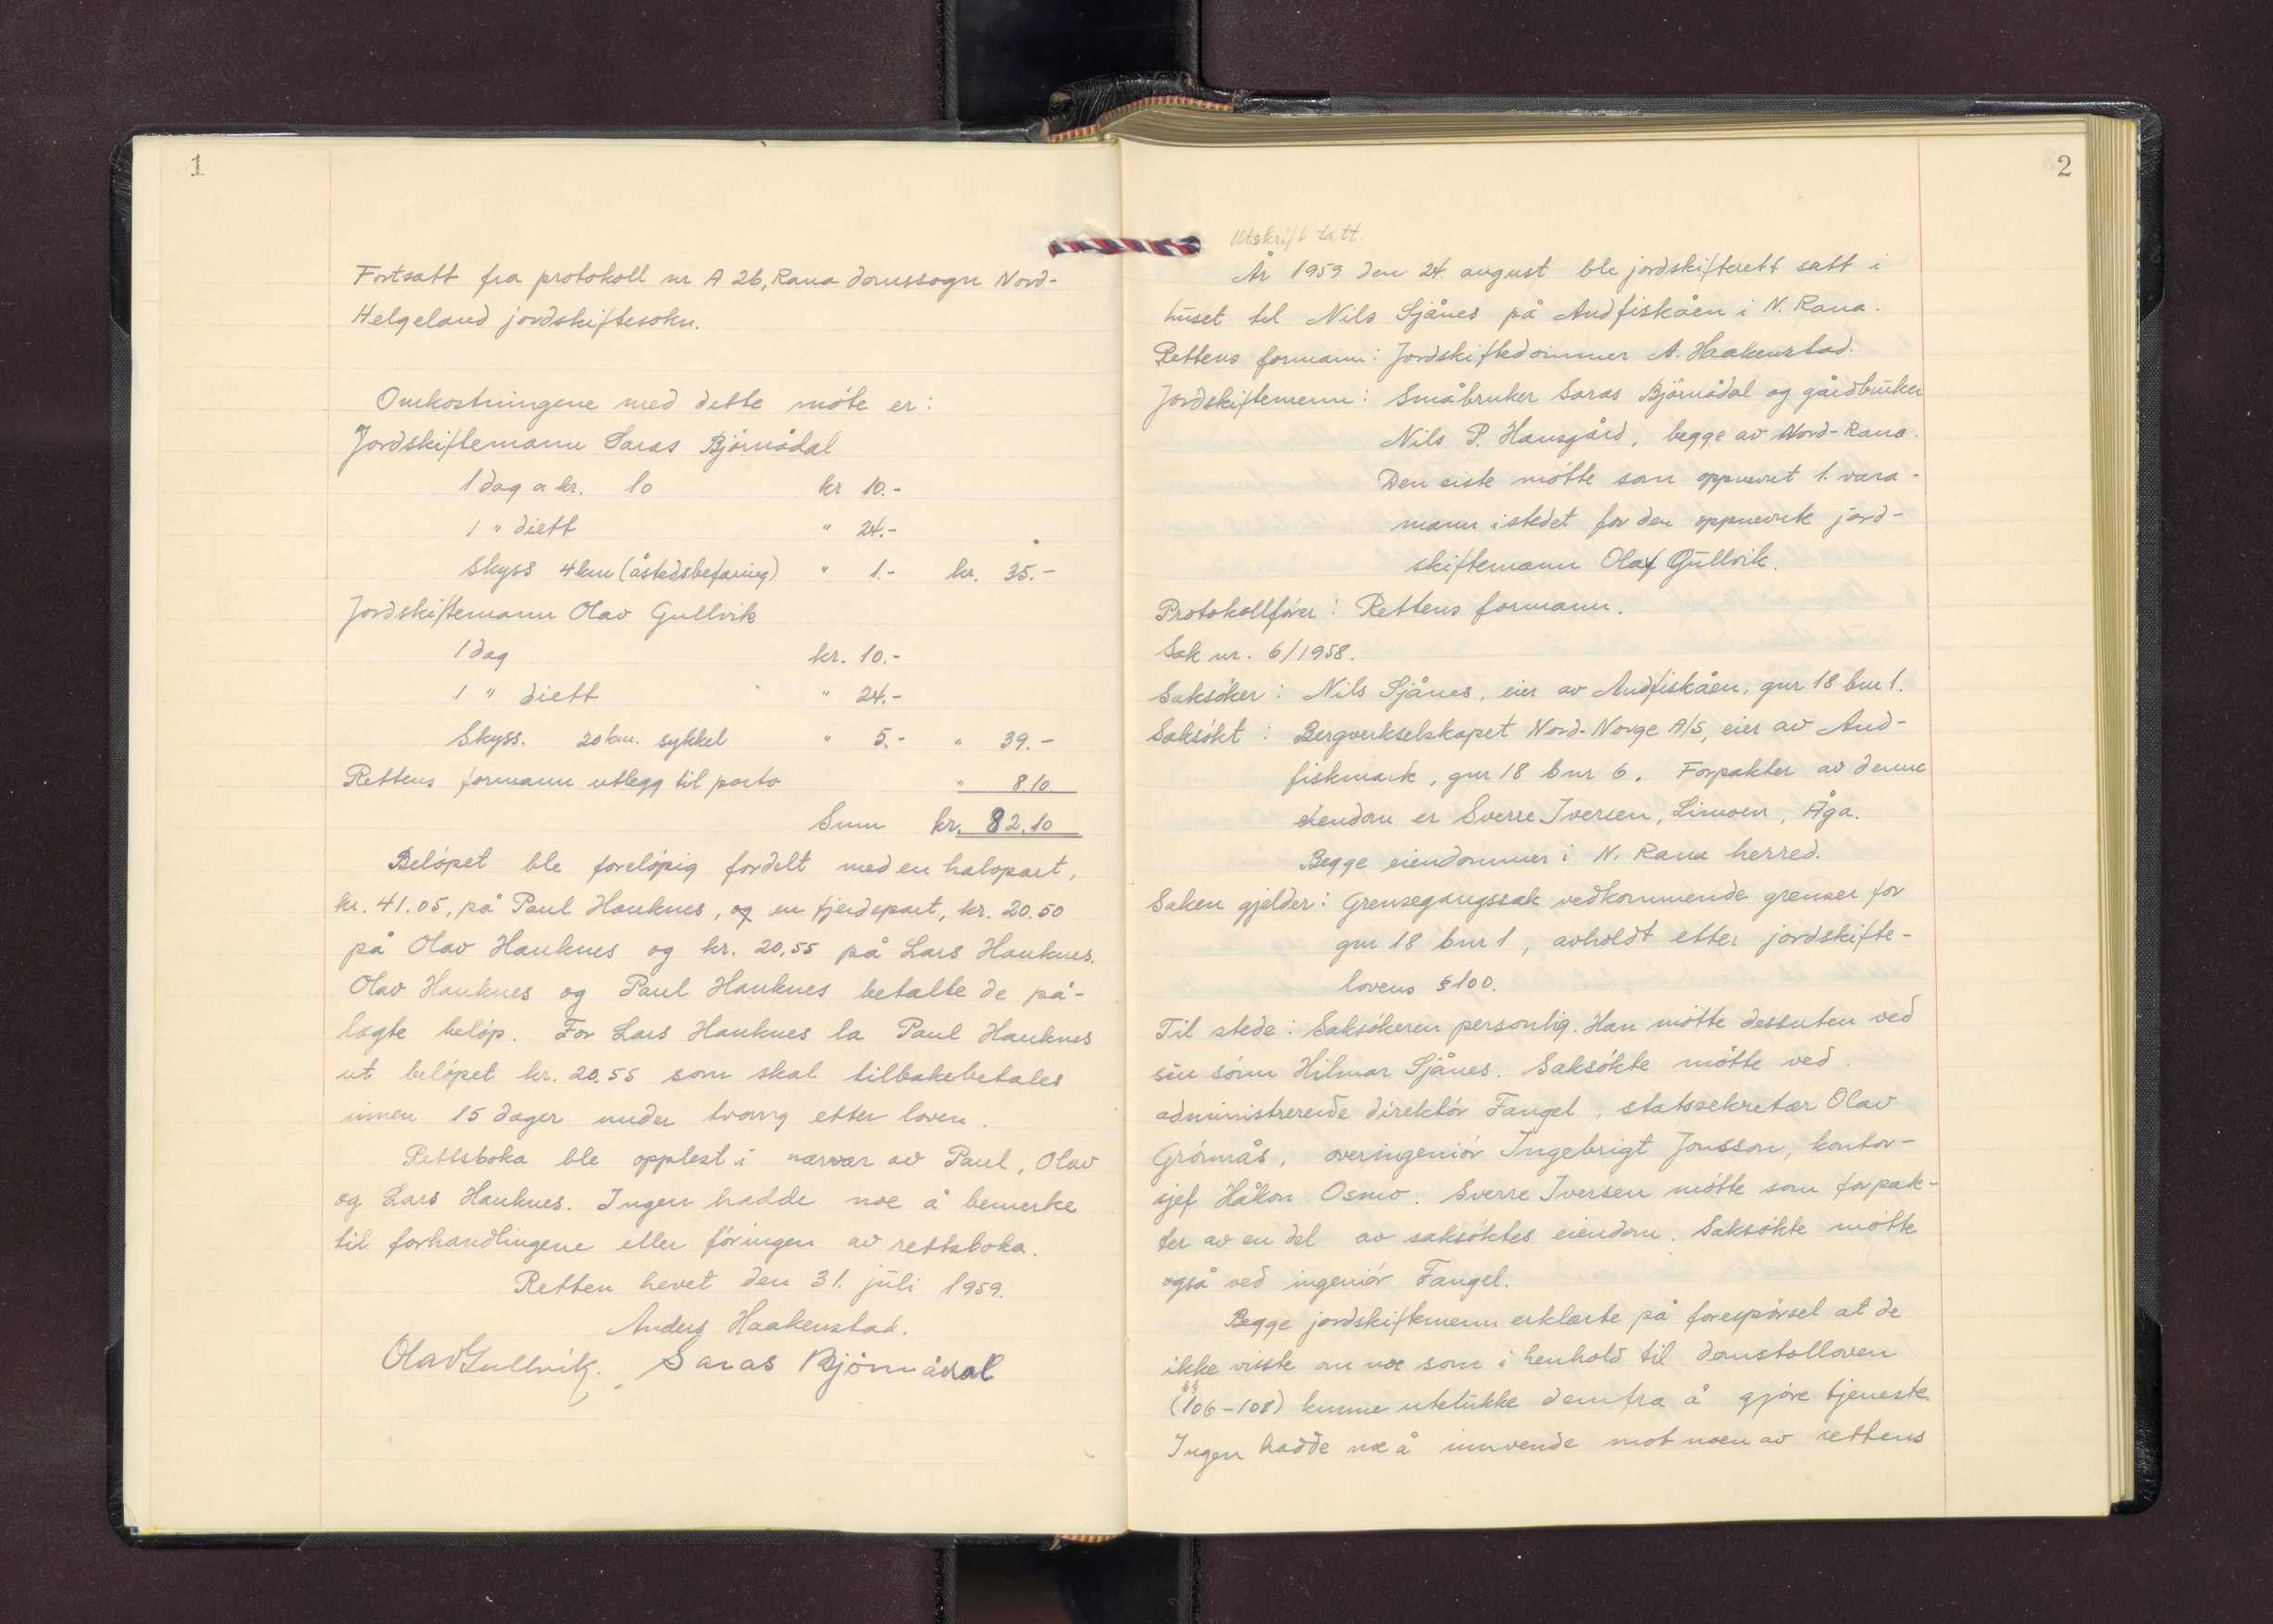 1
Fortsatt fra protokoll nr A 26, Rana domssogn Nord-
Helgeland jordskiftesokn.
Omkostningene med dette møte er:
Jordskiftemann Saras Bjørnådal
1 dag a kr. 10 kr 10.-
1 " diett " 24.-
Skyss 4 km (åstedsbefaring) " 1.- kr. 35.-
Jordskiftemann Olav Gullvik
1 dag kr. 10.-
1 " diett " 24.-
Skyss. 20 km. sykkel " 5.- " 39.-
Rettens formann utlegg til porto " 8.10
Sum kr. 82.10
Beløpet ble foreløpig fordelt med en halvpart,
kr. 41.05, på Paul Hauknes, og en fjerdepart, kr. 20.50
på Olav Hauknes og kr. 20,55 på Lars Hauknes.
Olav Hauknes og Paul Hauknes betalte de på-
lagte beløp. For Lars Hauknes la Paul Hauknes
ut beløpet kr. 20.55 som skal tilbakebetales
innen 15 dager under tvang etter loven.
Rettsboka ble opplest i nærvær av Paul, Olav
og Lars Hauknes. Ingen hadde noe å bemerke
til forhandlingene eller føringen av rettsboka.
Retten hevet den 31. juli 1959.
Anders Haakenstad.
Olav Gullvik. Saras Bjørnådal
2
Utskrift tatt.
År 1959 den 24. august ble jordskifterett satt i
huset til Nils Sjånes på Andfiskåen i N. Rana.
Rettens formann: Jordskiftedommer A. Haakenstad.
Jordskiftemenn: Småbruker Saras Bjørnådal og gårdbruker
Nils P. Hansgård, begge av Nord-Rana.
Den siste møtte som oppnevnt 1. vara-
mann istedet for den oppnevnte jord-
skiftemann Olaf Gullvik.
Protokollfører: Rettens formann.
Sak nr. 6/1958.
Saksøker: Nils Sjånes, eier av Andfiskåen, gnr 18 bnr 1.
Saksøkt: Bergverkselskapet Nord-Norge A/S, eier av And-
fiskmark, gnr 18 bnr 6. Forpakter av denne
eiendom er Sverre Iversen, Limoen, Åga.
Begge eiendommer i N. Rana herred.
Saken gjelder: Grensegangssak vedkommende grenser for
gnr 18 bnr 1, avholdt etter jordskifte-
lovens § 100.
Til stede: Saksøkeren personlig. Han møtte dessuten ved
sin sønn Hilmar Sjånes. Saksøkte møtte ved
administrerende direktør Fangel, statssekretær Olav
Grønnås, overingeniør Ingebrigt Jonsson, kontor-
sjef Håkon Osmo. Sverre Iversen møtte som forpak-
ter av en del av saksøktes eiendom. Saksøkte møtte
også ved ingeniør Fangel.
Begge jordskiftemenn erklærte på forespørsel at de
ikke visste om noe som i henhold til domstolloven
(§§ 106-108) kunne utelukke dem fra å gjøre tjeneste.
Ingen hadde noe å innvende mot noen av rettens